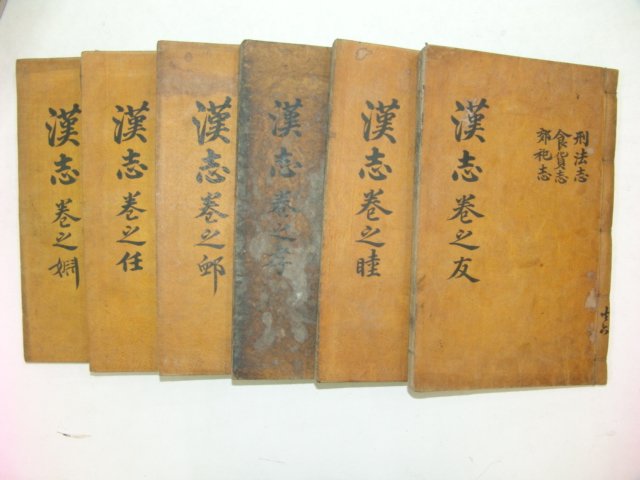 刑法志
食貨志
郊祀志
共六
漢志 卷之友
漢志 卷之睦
漢志 卷之孝
漢志 卷之卹
漢志 卷之任
漢志 卷之婣